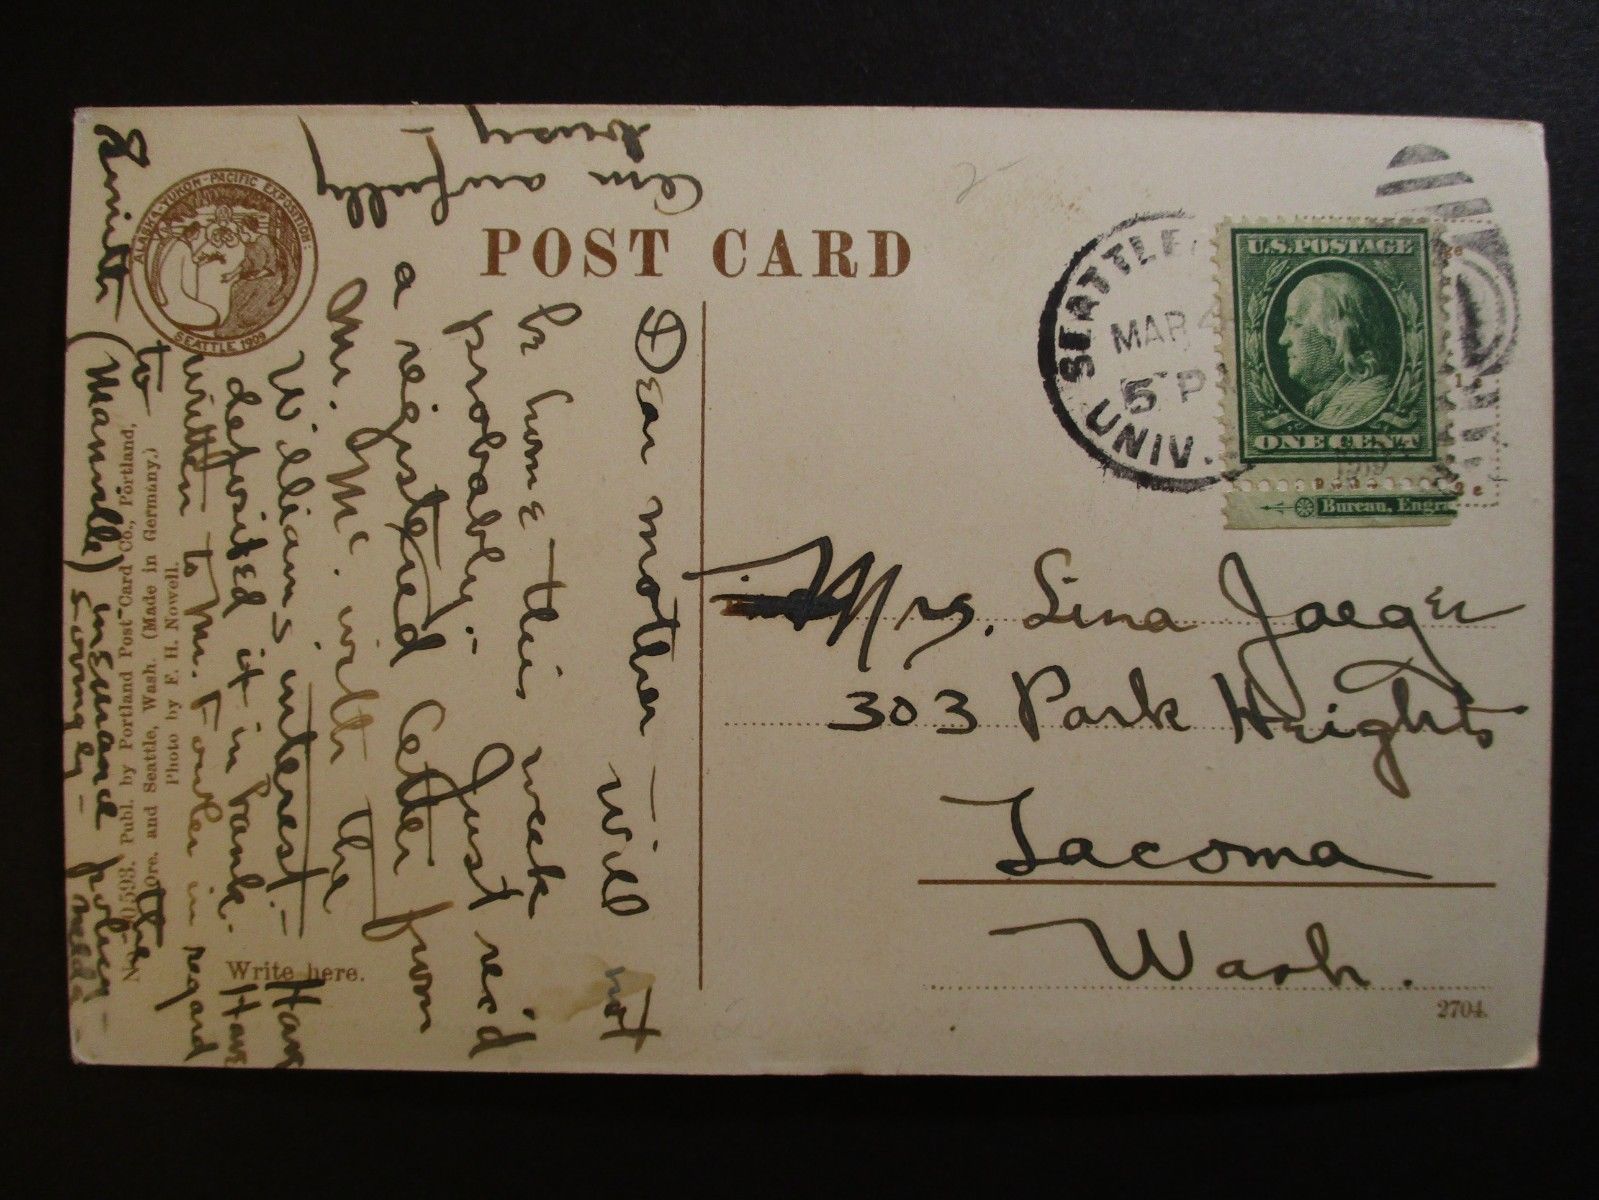 POST CARD
ALASKA-YUKON-PACIFIC EXPOSITION:
SEATTLE 1909
SEATTLE
MAR 4
5 P
UNIV.
U.S. POSTAGE
ONE CENT
Bureau, Engra
Mrs. Lina Jaeger
303 Park Heights
Tacoma
Wash.
2704.
Dear mother - will not
be home this week
probably - Just rec'd
a registered letter from
Mr. Mc. with the
Williams interest. - Have
deposited it in bank. Have
written to Mr. Fowler in regard
to the
(Manville) insurance policy -
Lovingly -
Am awfully
busy -
Write here.
No. 30593. Publ. by Portland Post Card Co., Portland,
Ore. and Seattle, Wash. (Made in Germany.)
Photo by F. H. Nowell.